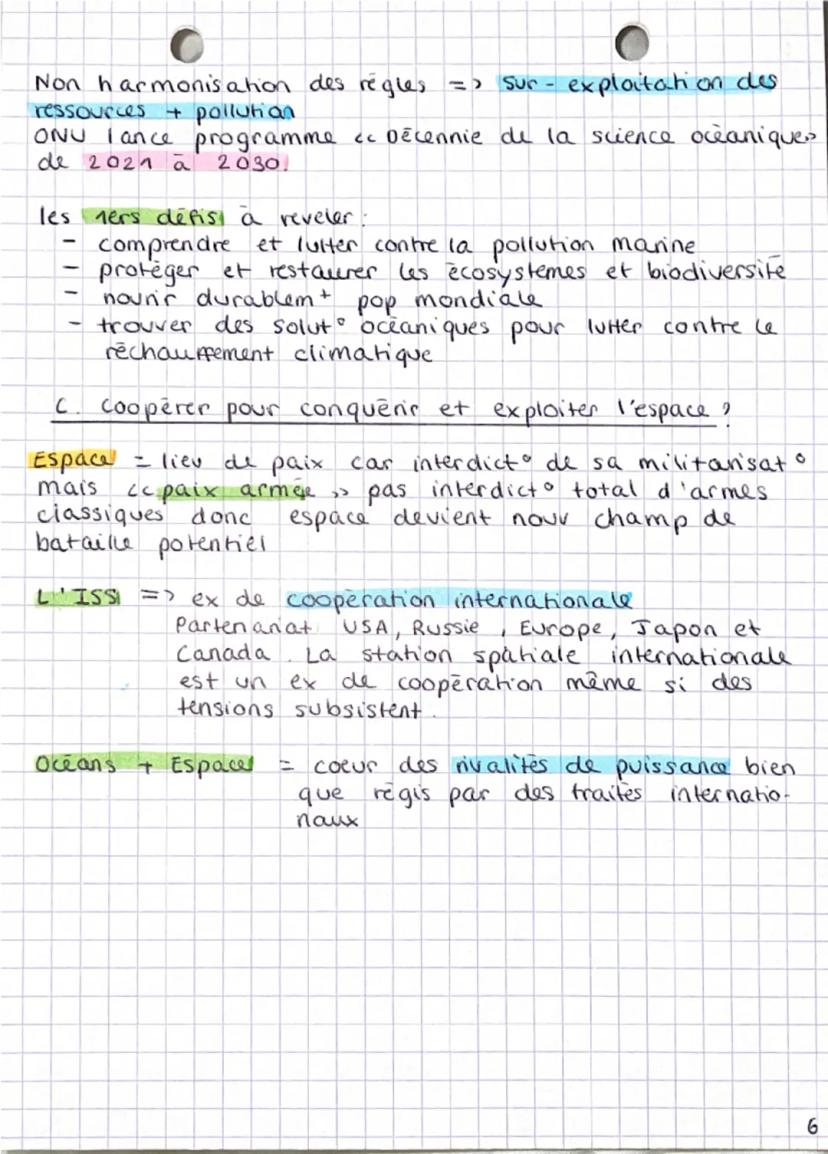 Non harmonisation des règles => sur-exploitation des
ressources + pollution
ONU lance programme << Décennie de la science océanique>>
de 2021 à 2030.
les 1ers défis à reveler :
- comprendre et lutter contre la pollution marine
- protéger et restaurer les écosystemes et biodiversité
- nourir durablem+ pop mondiale
- trouver des solut° océaniques pour lutter contre le
réchauffement climatique
C. Coopérer pour conquérir et exploiter l'espace ?
Espace = lieu de paix car interdict° de sa militarisat°
mais <<paix armée>> pas interdict° total d'armes
classiques donc espace devient nouv champ de
bataille potentiel
L'ISS => ex de coopération internationale
Partenariat USA, Russie, Europe, Japon et
Canada. La station spatiale internationale
est un ex de coopération même si des
tensions subsistent.
Océans + Espace = coeur des rivalités de puissance bien
que régis par des traités internatio-
naux
6